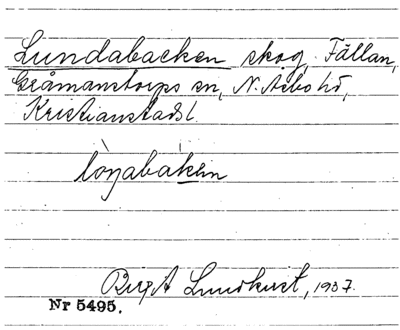 Lundabacken skog, Fällan,
Gråmanstorps sn, N. Åsbo hd,
Kristianstads l.
Birgit Lundkvist, 1937.
Nr 5495.